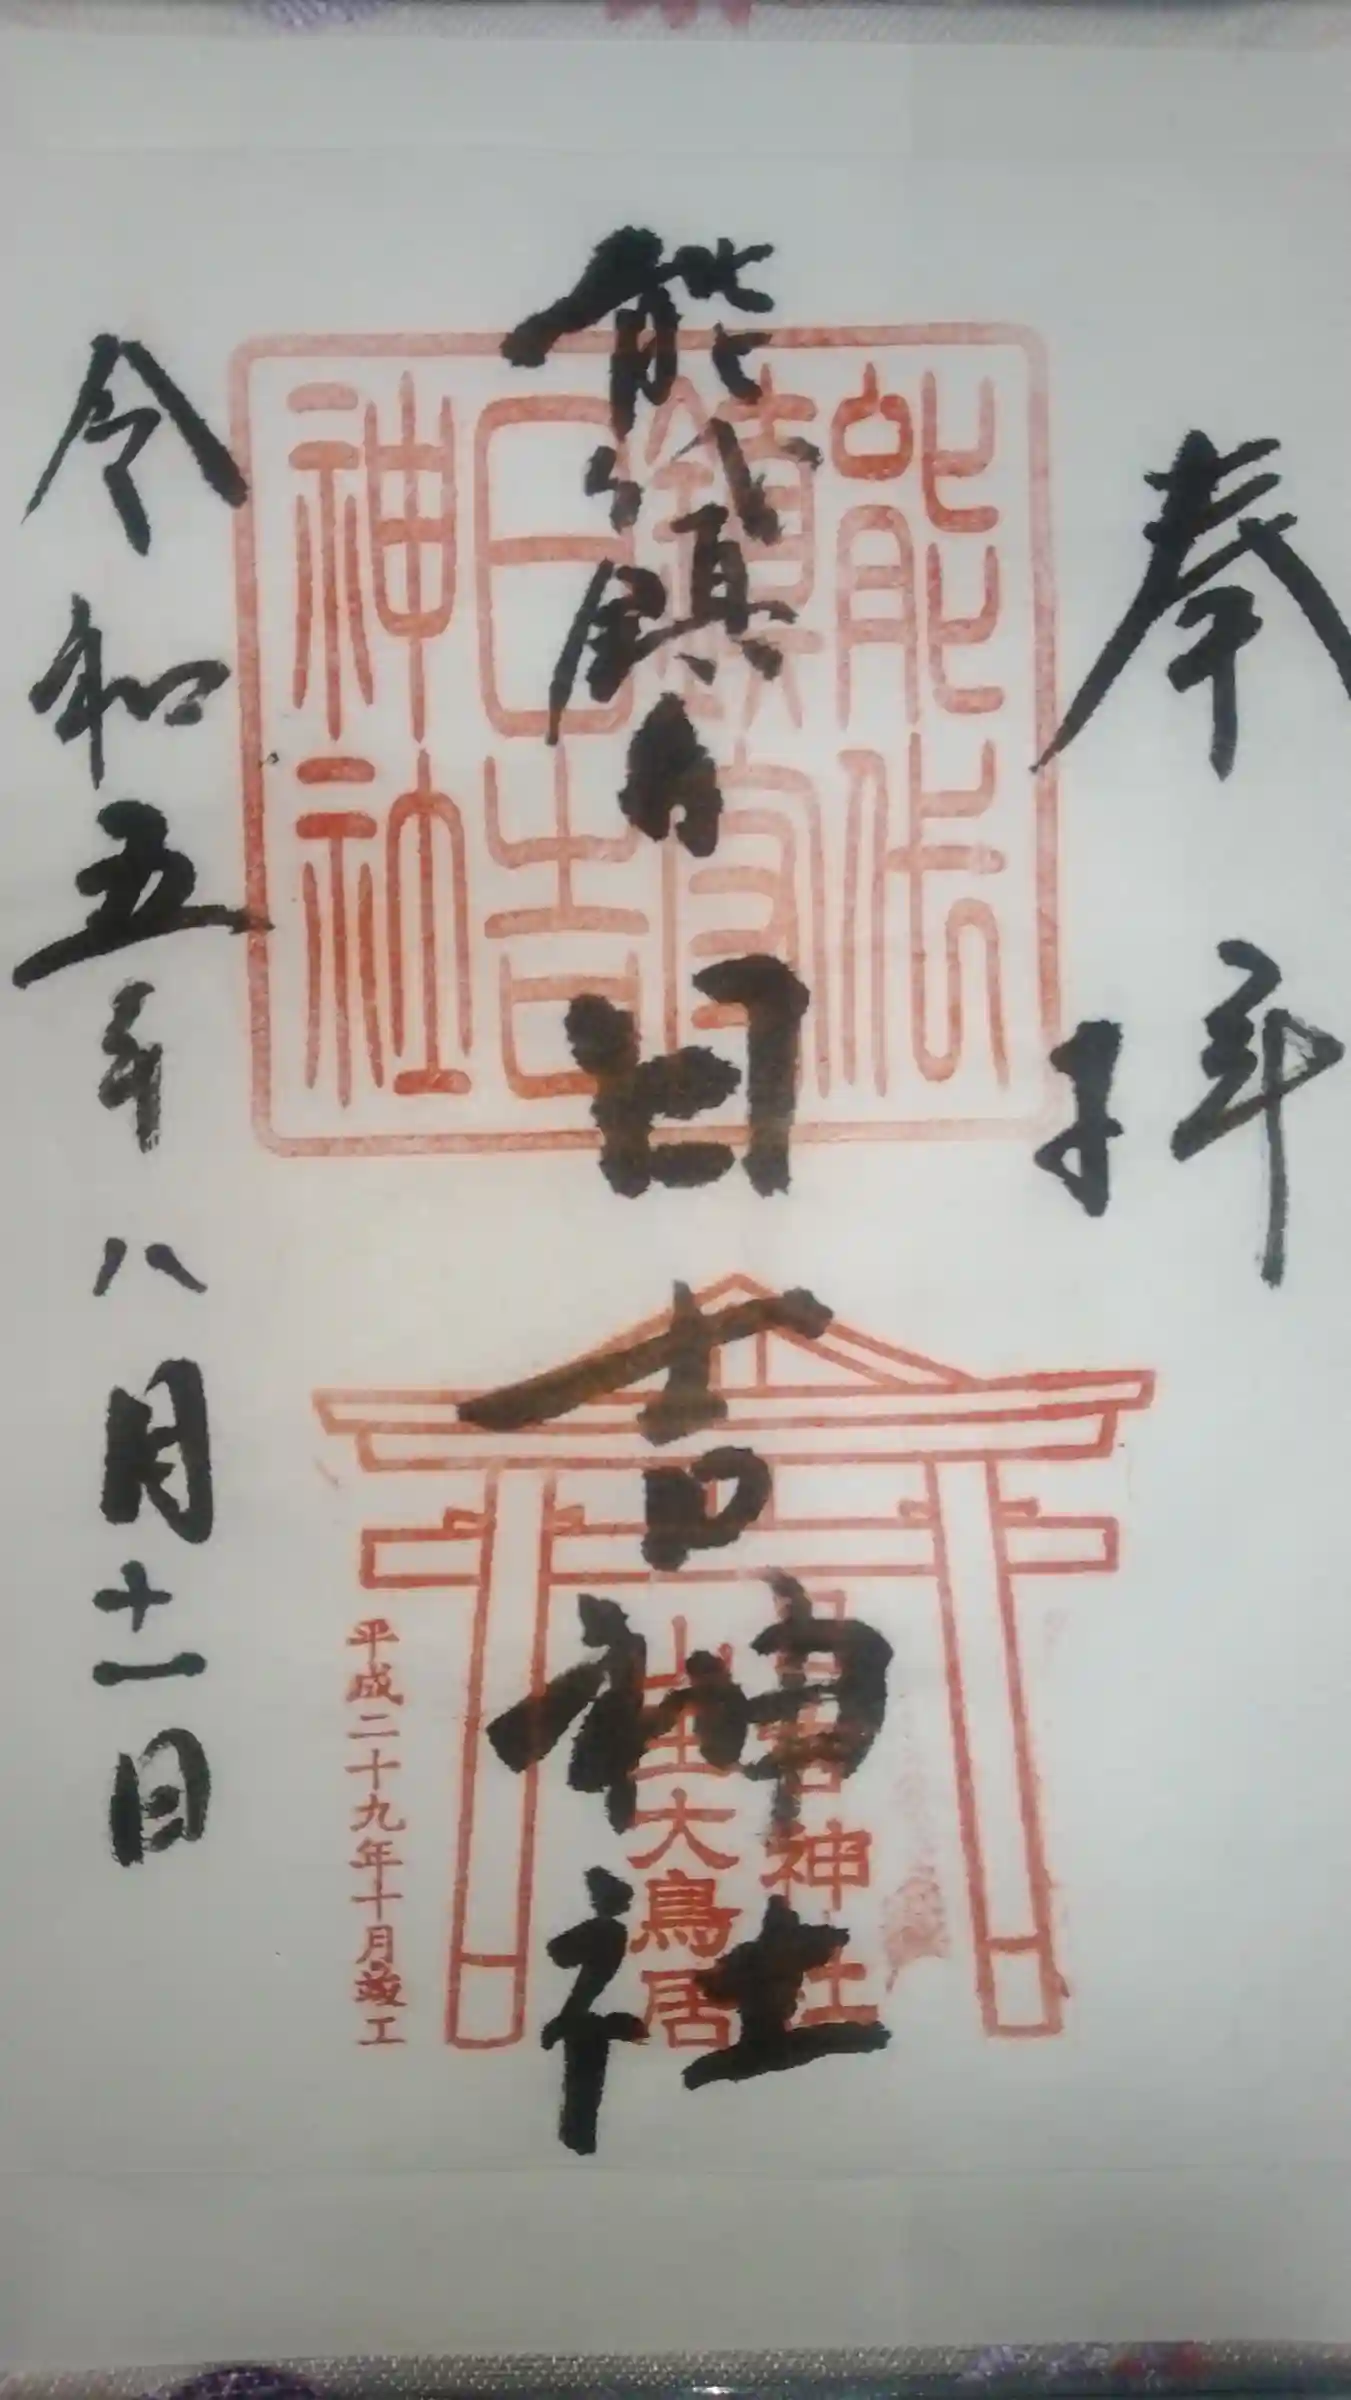 奉拝
能代鎮守
日吉神社
令和五年八月十一日
能代
鎮守
日吉
神社
日吉神社
山王大鳥居
平成二十九年十月竣工